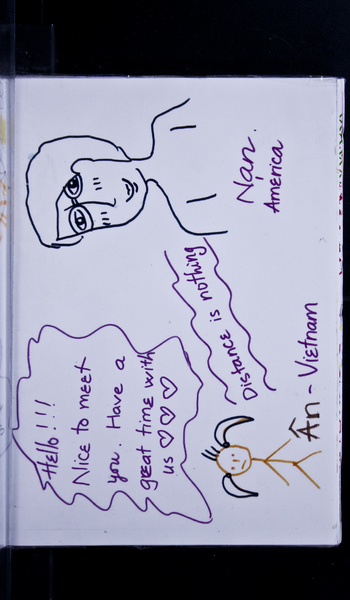 Hello!!!
Nice to meet
you. Have a
great time with
us ♡♡♡
Distance is nothing
Nan.
America
Ân - Vietnam